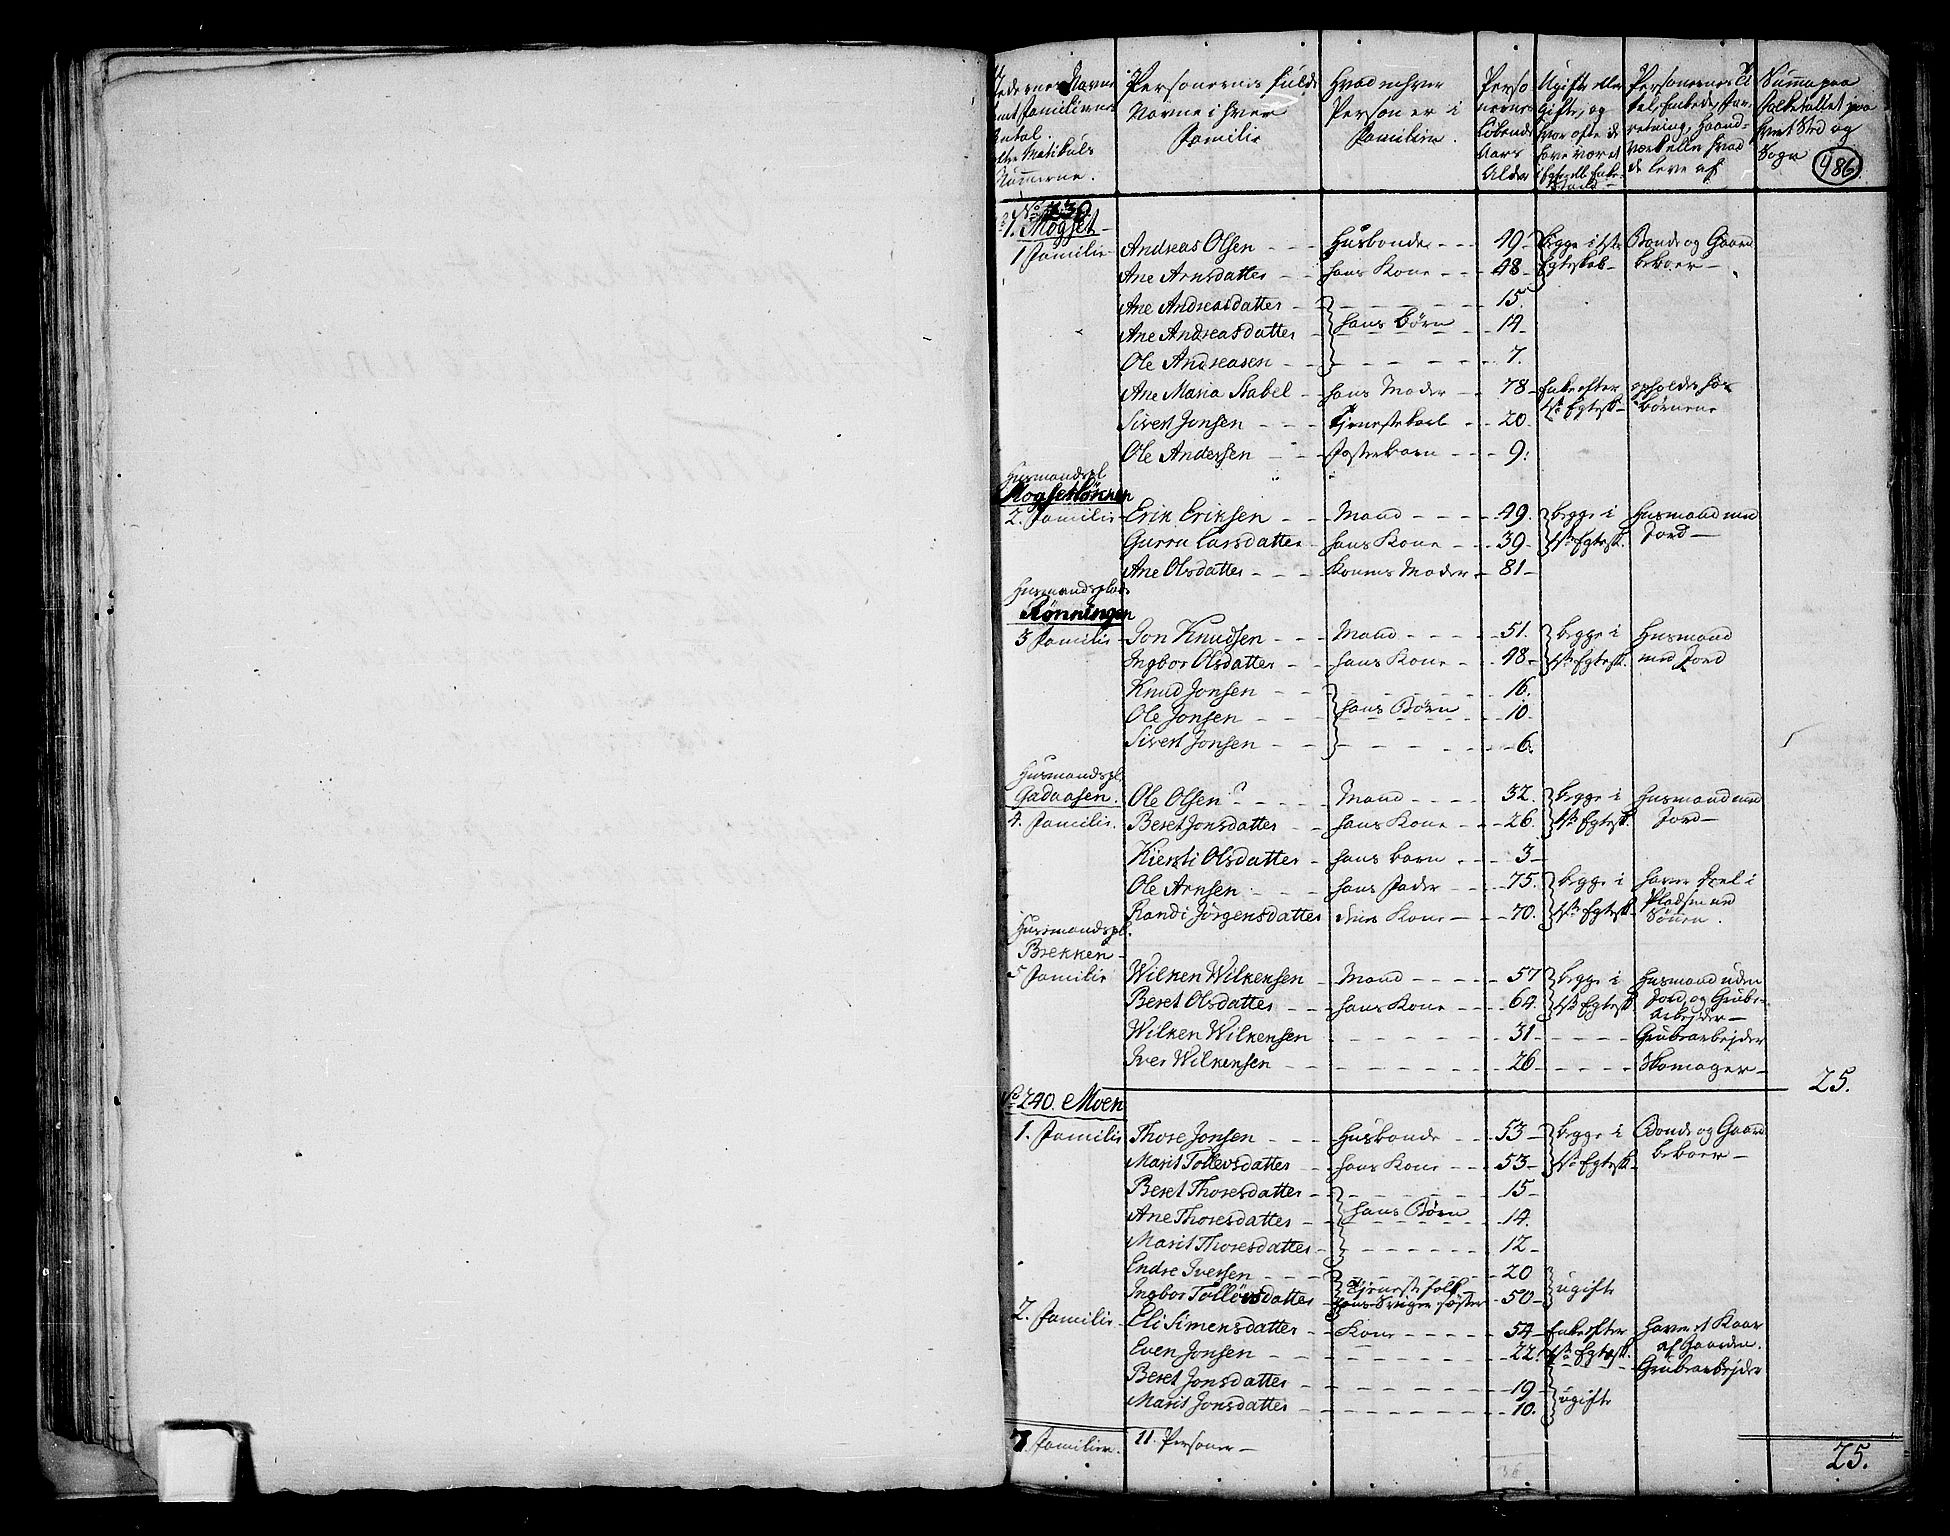 Stedernes Navne Personernes fulde Hvad enhver Perso Ugifte eller Personernes Ti Summa paa
samt Familiernes Navne i hver Person er i nernes Gifte, og tel, Embede, For Folketallet paa
Antal. Familie Familien. Løbende hvor ofte de retning, Haand- hvert Sted og
Matrikuls Aars have været værk eller hvad Sogn 486.
Nummerne. Alder i Egte eller Enke- de leve af
Stand
No 239.
Mogset
1 Familie Andreas Olsen Husbonde 49 begge i 1ste Bonde og Gaard
Ane Arnsdatter hans Kone 48 Egteskab beboer
Ane Andreasdatter 15.
Ane Andreasdatter hans Børn 14
Ole Andreasen 7.
Ane Maria Stabel hans Moder 78 Enke efter opholdes hos
Sivert Jonsen Tjenestekarl 20 1ste Egtesk. børnene
Ole Andersen Fosterbarn 9.
Husmandspl.
Mogsetløkken
2. Familie Erik Eriksen Mand 49. begge i Husmand med
Gurru Larsdatter hans Kone 39 1ste Egtesk. Jord
Ane Olsdatter Konens Moder 81
Husmandsplads
Rønningen
3 Familie Jon Knudsen Mand 51. begge i Husmand
Ingbor Olsdatter hans Kone 48 1ste Egtesk. med Jord
Knud Jonsen 16.
Ole Jonsen hans Børn 10.
Sivert Jonsen 6.
Husmandspl.
Gadaasen. Ole Olsen Mand 32. begge i Husmand med
4. Familie. Beret Jonsdatter hans Kone 26. 1ste Egtesk. Jord
Kiersti Olsdatter hans barn 3
Ole Arnsen hans Fader 75. begge i haver Deel i
Randi Jørgensdatter Kone 70. 1ste Egtesk. Pladsen med
Husmandspl. Sønnen.
Brekken
5 Familie Wilken Wilkensen Mand 57 begge i Husmand uden
Beret Olsdatter hans Kone 64. 1ste Egtesk. Jord, og Grube-
Arbejder
Wilken Wilkensen 31 Grubearbejder
Iver Wilkensen 26 Skomager
25.
No 240. Moen
1. Familie Thore Jonsen Husbonde 53 begge i Bonde og Gaard
Marit Tollevsdatter hans Kone 53 1ste Egtesk. beboer
Beret Thoresdatter 15
Ane Thoresdatter hans Børn 14.
Marit Thoresdatter 12
Endre Iversen Tjenestefolk 20
Ingbor Tollövsdatter hans Sviger søster 50 ugifte
2. Familie Eli Simensdatter Kone 54 Enke efter haver et Kaar
Even Jonsen 22. 1ste Egtesk. af Gaarden.
Grubearbejder
Beret Jonsdatter 19
Marit Jonsdatter 10. ugifte
7 Familier. 11. Personer
25.
36